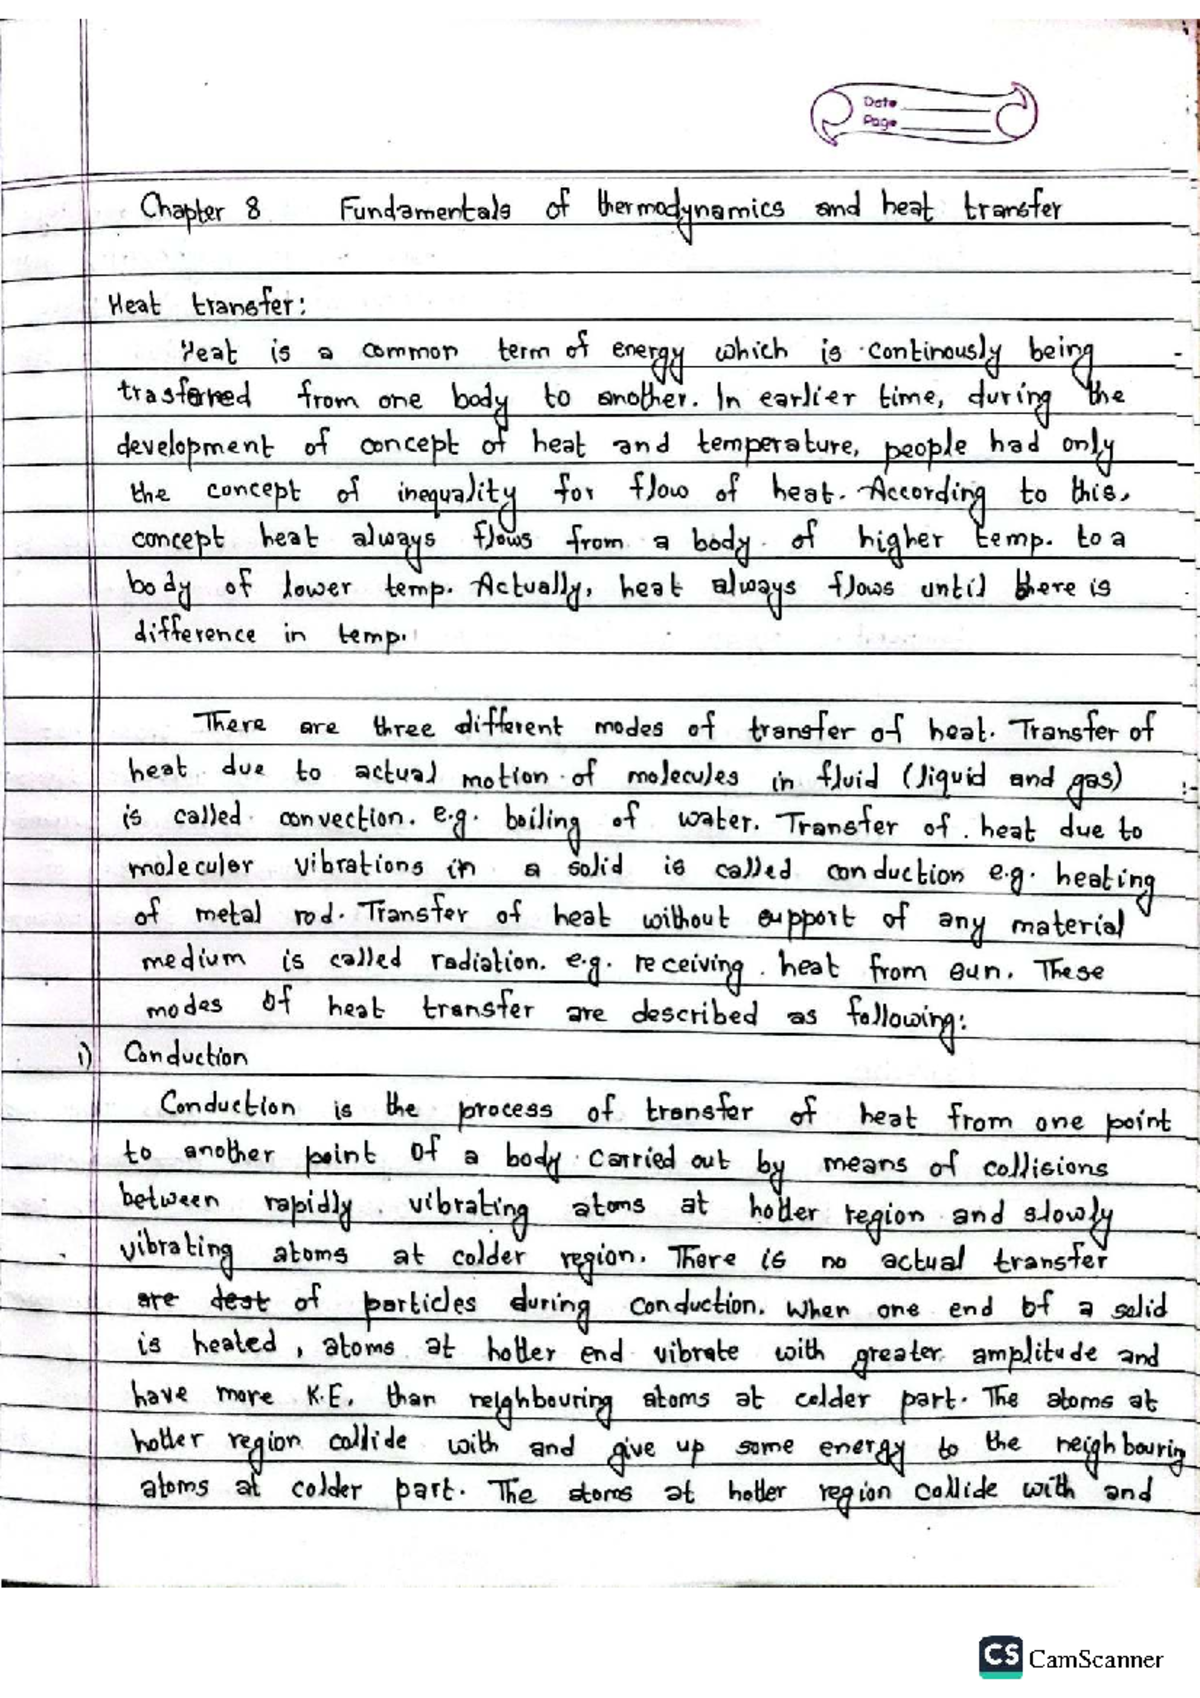 Date
Page
Chapter 8 Fundamentals of thermodynamics and heat transfer
Heat transfer:
Heat is a common term of energy which is continously being
trasferred from one body to another. In earlier time, during the
development of concept of heat and temperature, people had only
the concept of inequality for flow of heat. According to this,
concept heat always flows from a body of higher temp. to a
body of lower temp. Actually, heat always flows until there is
difference in temp.
There are three different modes of transfer of heat. Transfer of
heat due to actual motion of molecules in fluid (liquid and gas)
is called convection. e.g. boiling of water. Transfer of heat due to
molecular vibrations in a solid is called conduction e.g. heating
of metal rod. Transfer of heat without support of any material
medium is called radiation. e.g. receiving heat from sun. These
modes of heat transfer are described as following:
i) Conduction
Conduction is the process of transfer of heat from one point
to another point of a body carried out by means of collisions
between rapidly vibrating atoms at hotter region and slowly
vibrating atoms at colder region. There is no actual transfer
are dest of particles during conduction. When one end of a solid
is heated, atoms at hotter end vibrate with greater amplitude and
have more K.E. than neighbouring atoms at colder part. The atoms at
hotter region collide with and give up some energy to the neighbouring
atoms at colder part. The atoms at hotter region collide with and
CS CamScanner